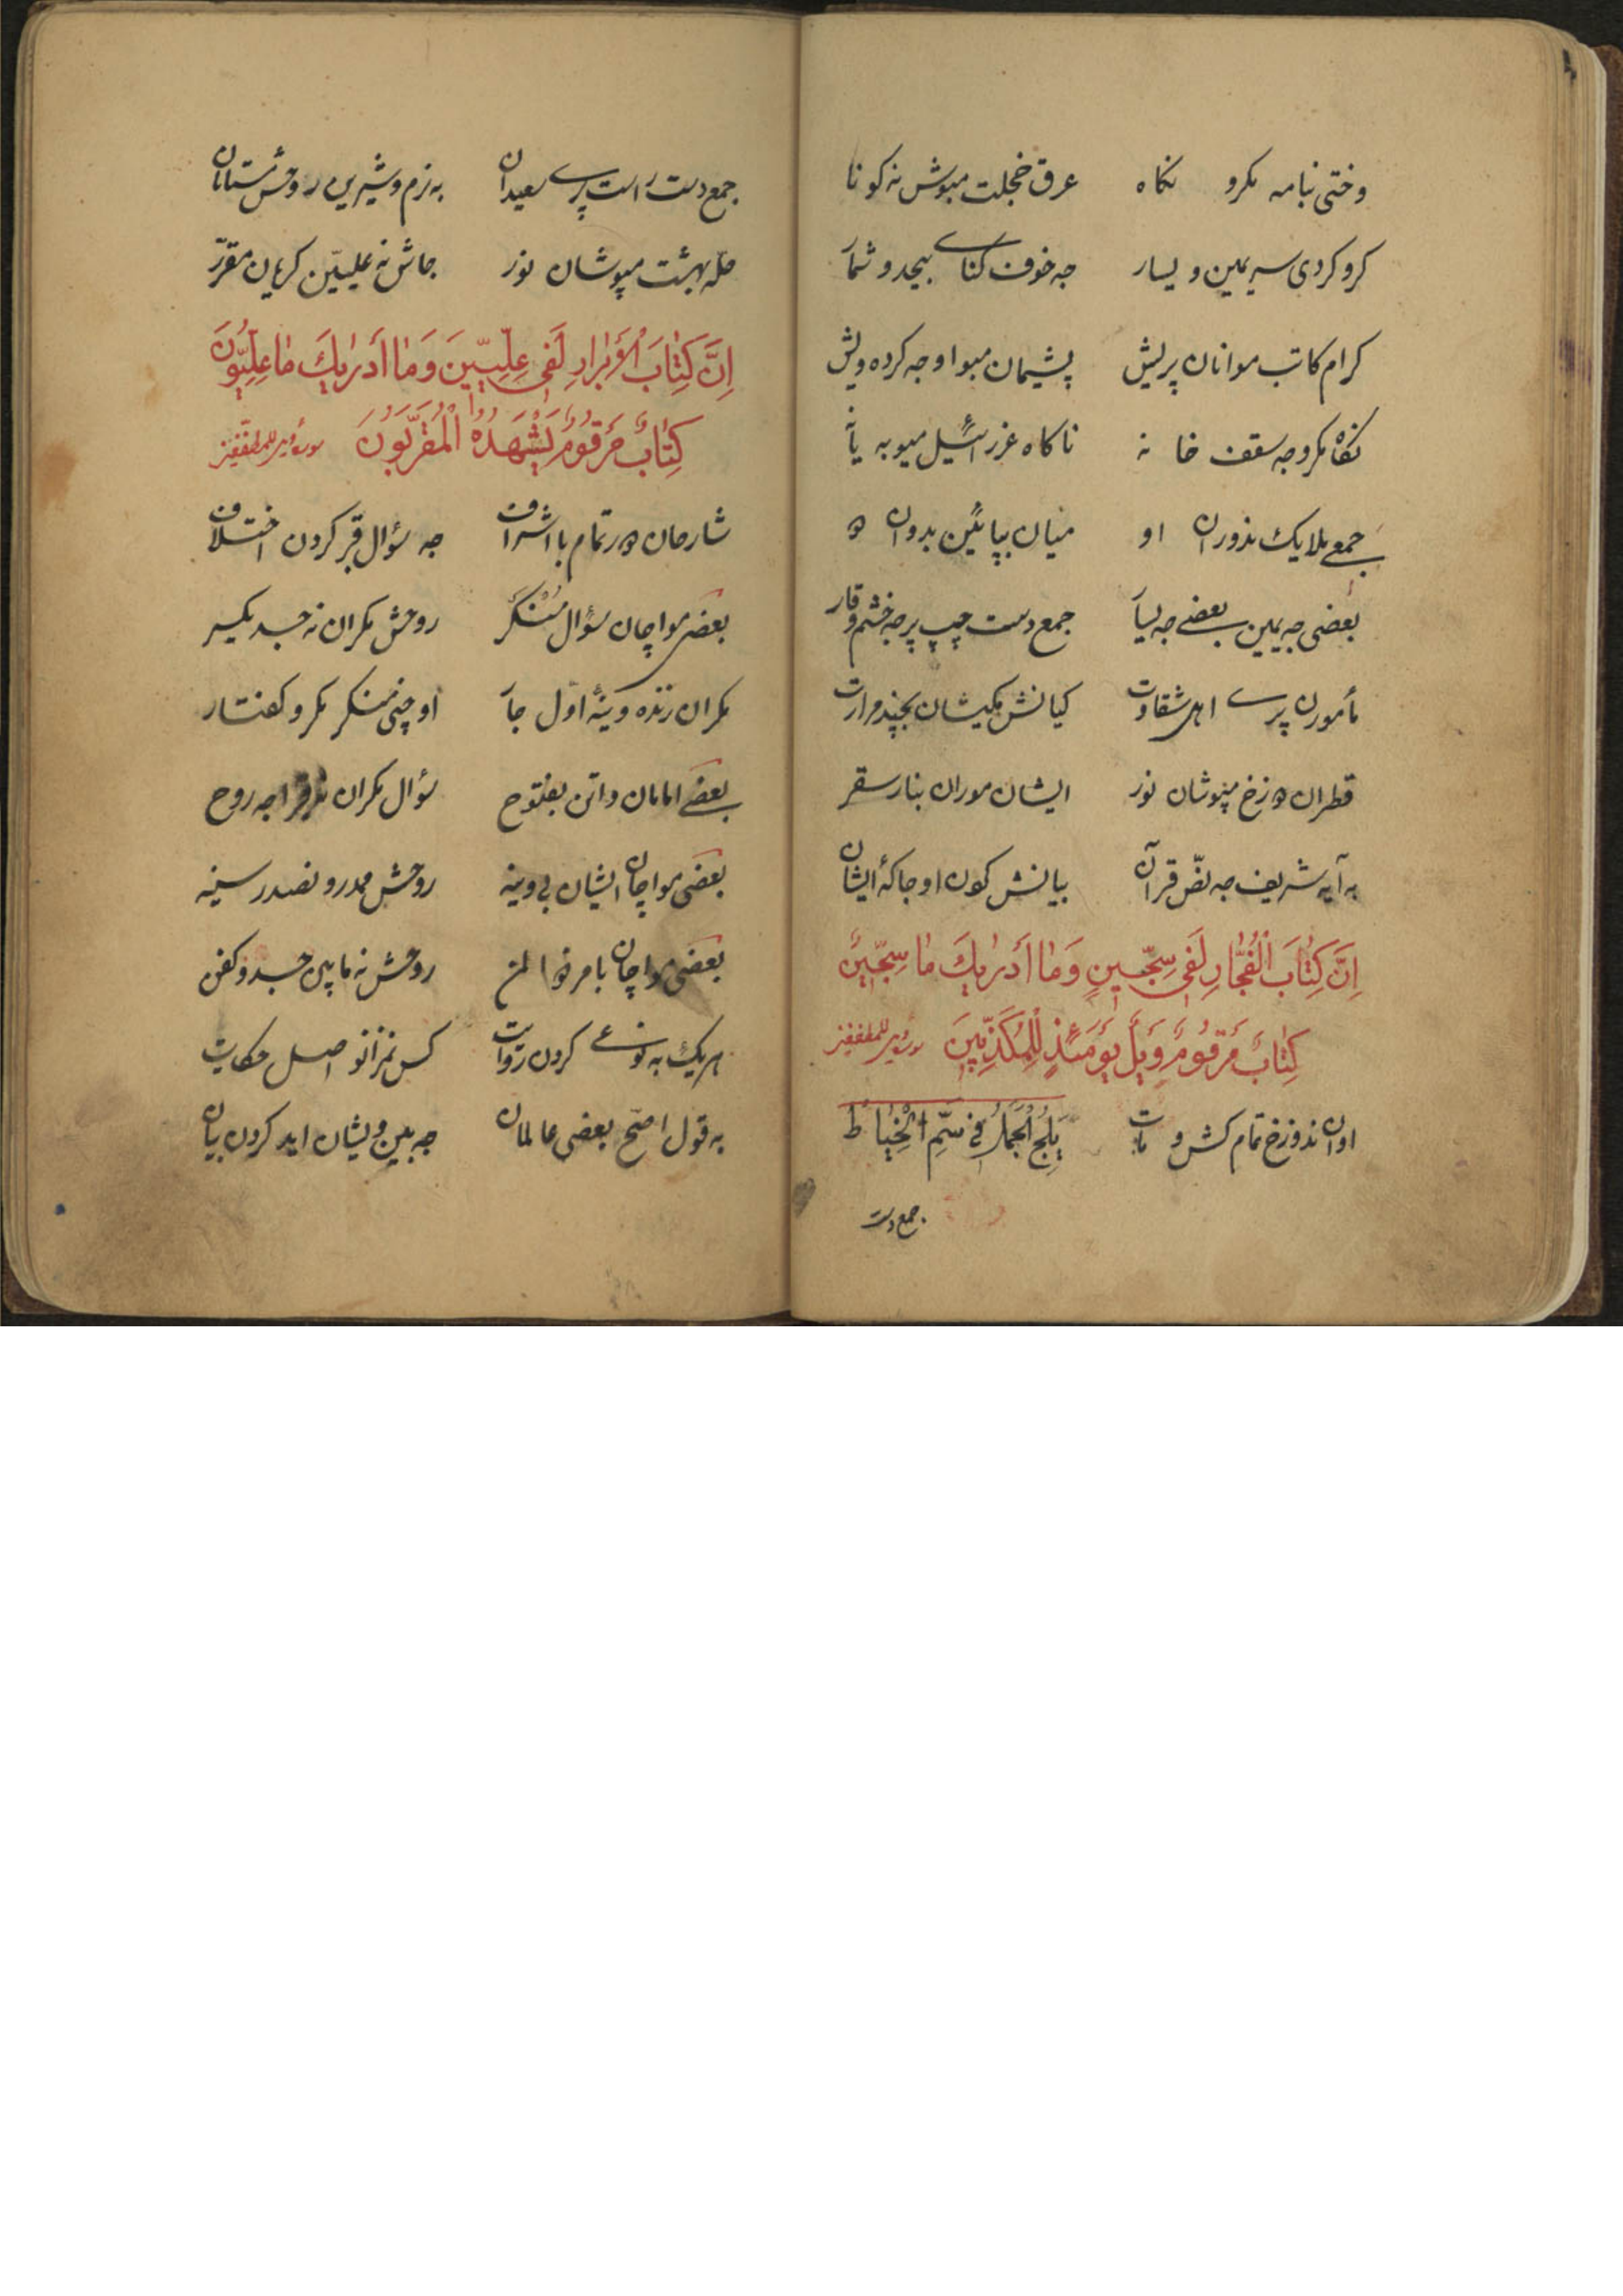 وختی بنامه مکرو نکاه عرق خجلت مبوش نه کونا
کرو کردی سیر یمین و یسار جه خوف کنای بیحد و شمار
کرام کاتب موانان پریش پشیمان مبو او جه کرده ویش
نکاه مکرو جه سقف خانه ناکاه عزرائیل میو به یانه
جمعی ملایک ندوران او میان بپائین بدوان او
بعضی جه یمین بعضی جه یسار جمع دست چپ پر جه خشم و قار
مأمورن پری اهل شقاوت کیانش مکیشان بچند مرارت
قطران دوزخ مپوشان نوز ایشان موران بنار سقر
به آیه شریف جه نص قرآن بیانش کون او جاکهٔ ایشان
اِنَّ كِتَابَ الْفُجَّارِ لَفِي سِجِّينٍ وَمَا أَدْرٰيكَ مَا سِجِّينٌ
كِتَابٌ مَرْقُومٌ وَيْلٌ يَوْمَئِذٍ لِلْمُكَذِّبِينَ سورة للمطففين
اوان ندوزخ تمام کش و مات يَلِجَ الْجَمَلُ فِي سَمِّ الْخِيَاطِ
جمع دست
جمع دست راست پری سعیدان به نرم و شیرین روحش مستانان
حله بهشت مپوشان نوز جاش نه علیین کریان مقرر
اِنَّ كِتَابَ الْأَبْرَارِ لَفِي عِلِّيِّينَ وَمَا أَدْرٰيكَ مَا عِلِّيُّونَ
كِتَابٌ مَرْقُومٌ يَشْهَدُهُ الْمُقَرَّبُونَ سورة للمطففين
شارحان در تمام با اشراف جه سؤال قبر کردن اختلاف
بعضی مواچان سؤال منکر روحش مکران نه جسد یکسر
مکران زنده وینهٔ اول جار او چنی منکر مکرو کفتار
بعضی امامان واتن بفتوح سؤال مکران جه روح
بعضی مواچان ایشان بی وینه روحش مدرو نصدر سینه
بعضی مواچان با مر ذو المن روحش نه مابین جسد و کفن
هر یک به نوعی کردن روایت کس نمزانو اصل حکایت
به قول اصح بعضی عالمان جه بین ویشان اید کردن بیان